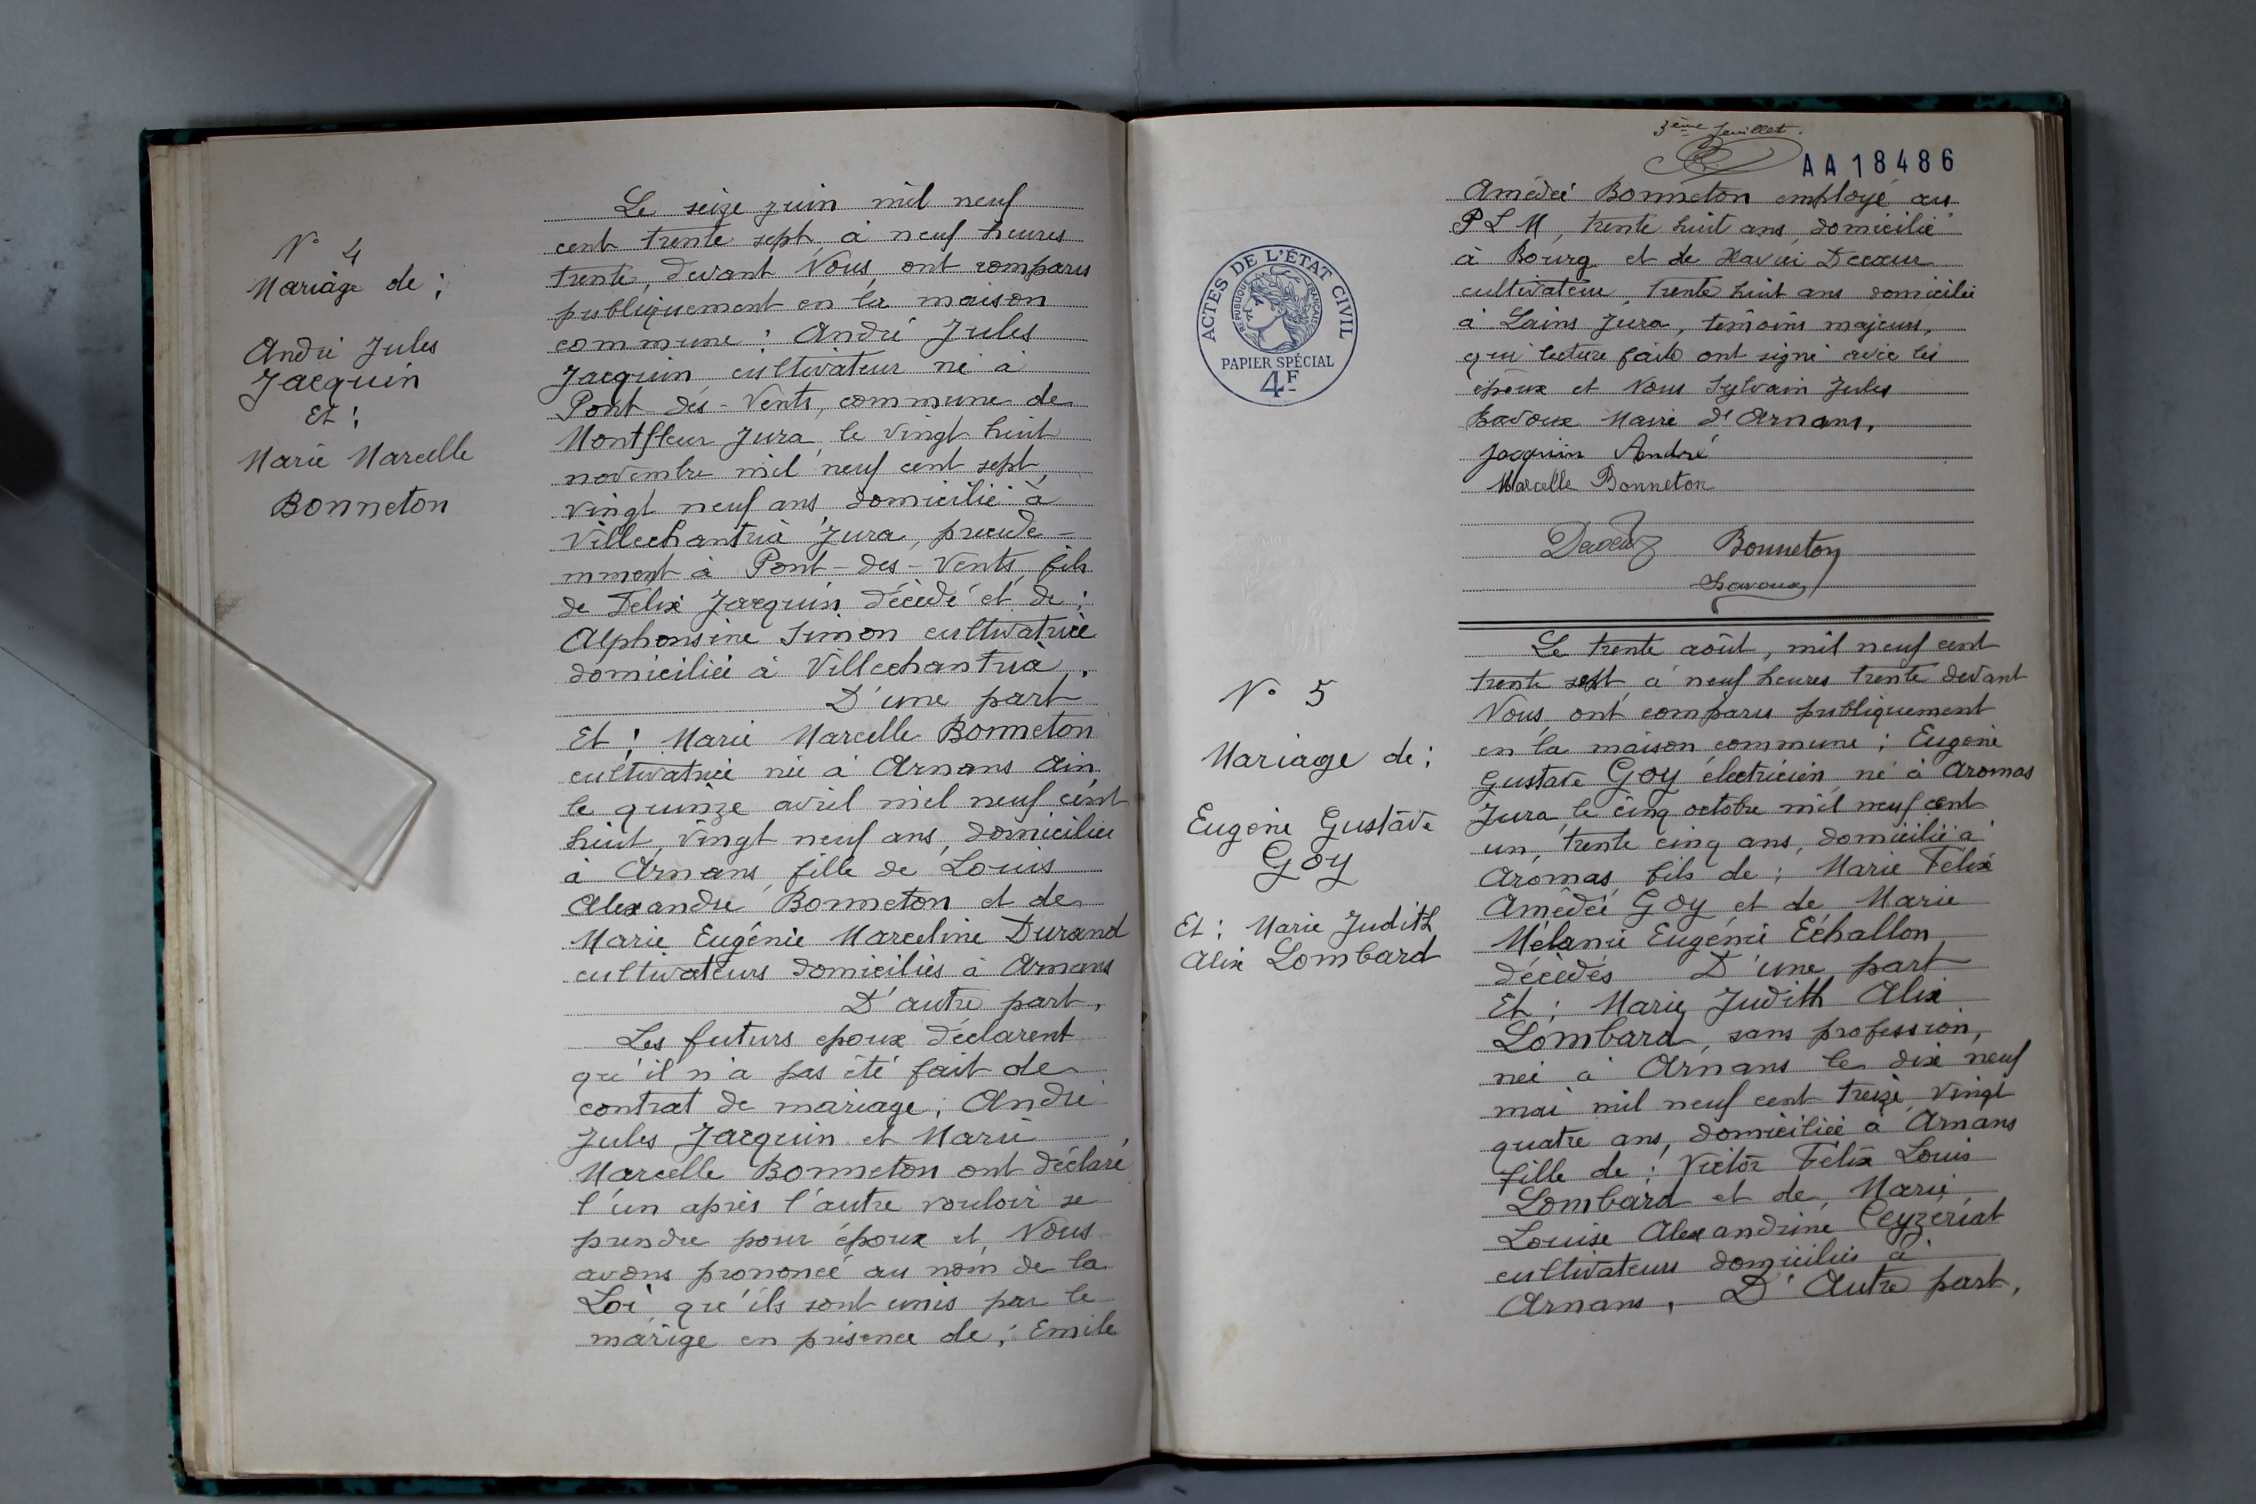 N° 4
Mariage de ;
André Jules
Jacquin
Et ;
Marie Marcelle
Bonneton
Le seize juin mil neuf
cent trente sept, à neuf heures
trente, devant Nous, ont comparu
publiquement en la maison
commune : André Jules
Jacquin cultivateur né à
Pont des-Vents, commune de
Montfleur Jura, le vingt huit
novembre mil neuf cent sept,
vingt neuf ans, domicilié à
Villechantria Jura, précéde-
mment à Pont-des-Vents, fils
de Félix Jacquin décédé et de ;
Alphonsine Simon cultivatrice
domiciliée à Villechantria.
D'une part
Et ; Marie Marcelle Bonneton
cultivatrice née à Arnans Ain
le quinze avril mil neuf cent
huit, vingt neuf ans, domiciliée
à Arnans, fille de Louis
Alexandre Bonneton et de
Marie Eugénie Marceline Durand
cultivateurs domiciliés à Arnans
D'autre part,
Les futurs époux déclarent
qu'il n'a pas été fait de
contrat de mariage ; André
Jules Jacquin et Marie
Marcelle Bonneton ont déclaré
l'un après l'autre vouloir se
prendre pour époux et Nous
avons prononcé au nom de la
Loi qu'ils sont unis par le
marige en présence de ; Emile
3ème feuillet.
AA18486
Amédée Bonneton employé au
P L M, trente huit ans, domicilié
à Bourg et de Xavier
cultivateur, trente huit ans domicilié
à Lains Jura, témoins majeurs,
qui lecture faite ont signé avec les
époux et Nous Sylvain Jules
Bavoux Maire d'Arnans,
Jacquin André
Marcelle Bonneton
Bonneton
Bavoux
ACTES DE L'ÉTAT CIVIL
RÉPUBLIQUE FRANÇAISE
PAPIER SPÉCIAL
4F
N° 5
Mariage de ;
Eugène Gustave
Goy
Et ; Marie Judith
Alix Lombard
Le trente août, mil neuf cent
trente sept à neuf heures trente devant
Nous, ont comparu publiquement
en la maison commune ; Eugène
Gustave Goy électricien né à Aromas
Jura, le cinq octobre mil neuf cent
un, trente cinq ans, domicilié à
Aromas, fils de ; Marie Félix
Amédée Goy et de Marie
Mélanie Eugénie Échallon
décédés D'une part
Et ; Marie Judith Alix
Lombard, sans profession,
née à Arnans le dix neuf
mai mil neuf cent treize, vingt
quatre ans, domiciliée à Arnans
fille de ; Victor Félix Louis
Lombard et de Marie
Louise Alexandrine Ceyzériat
cultivateurs domiciliés à
Arnans, D'Autre part,